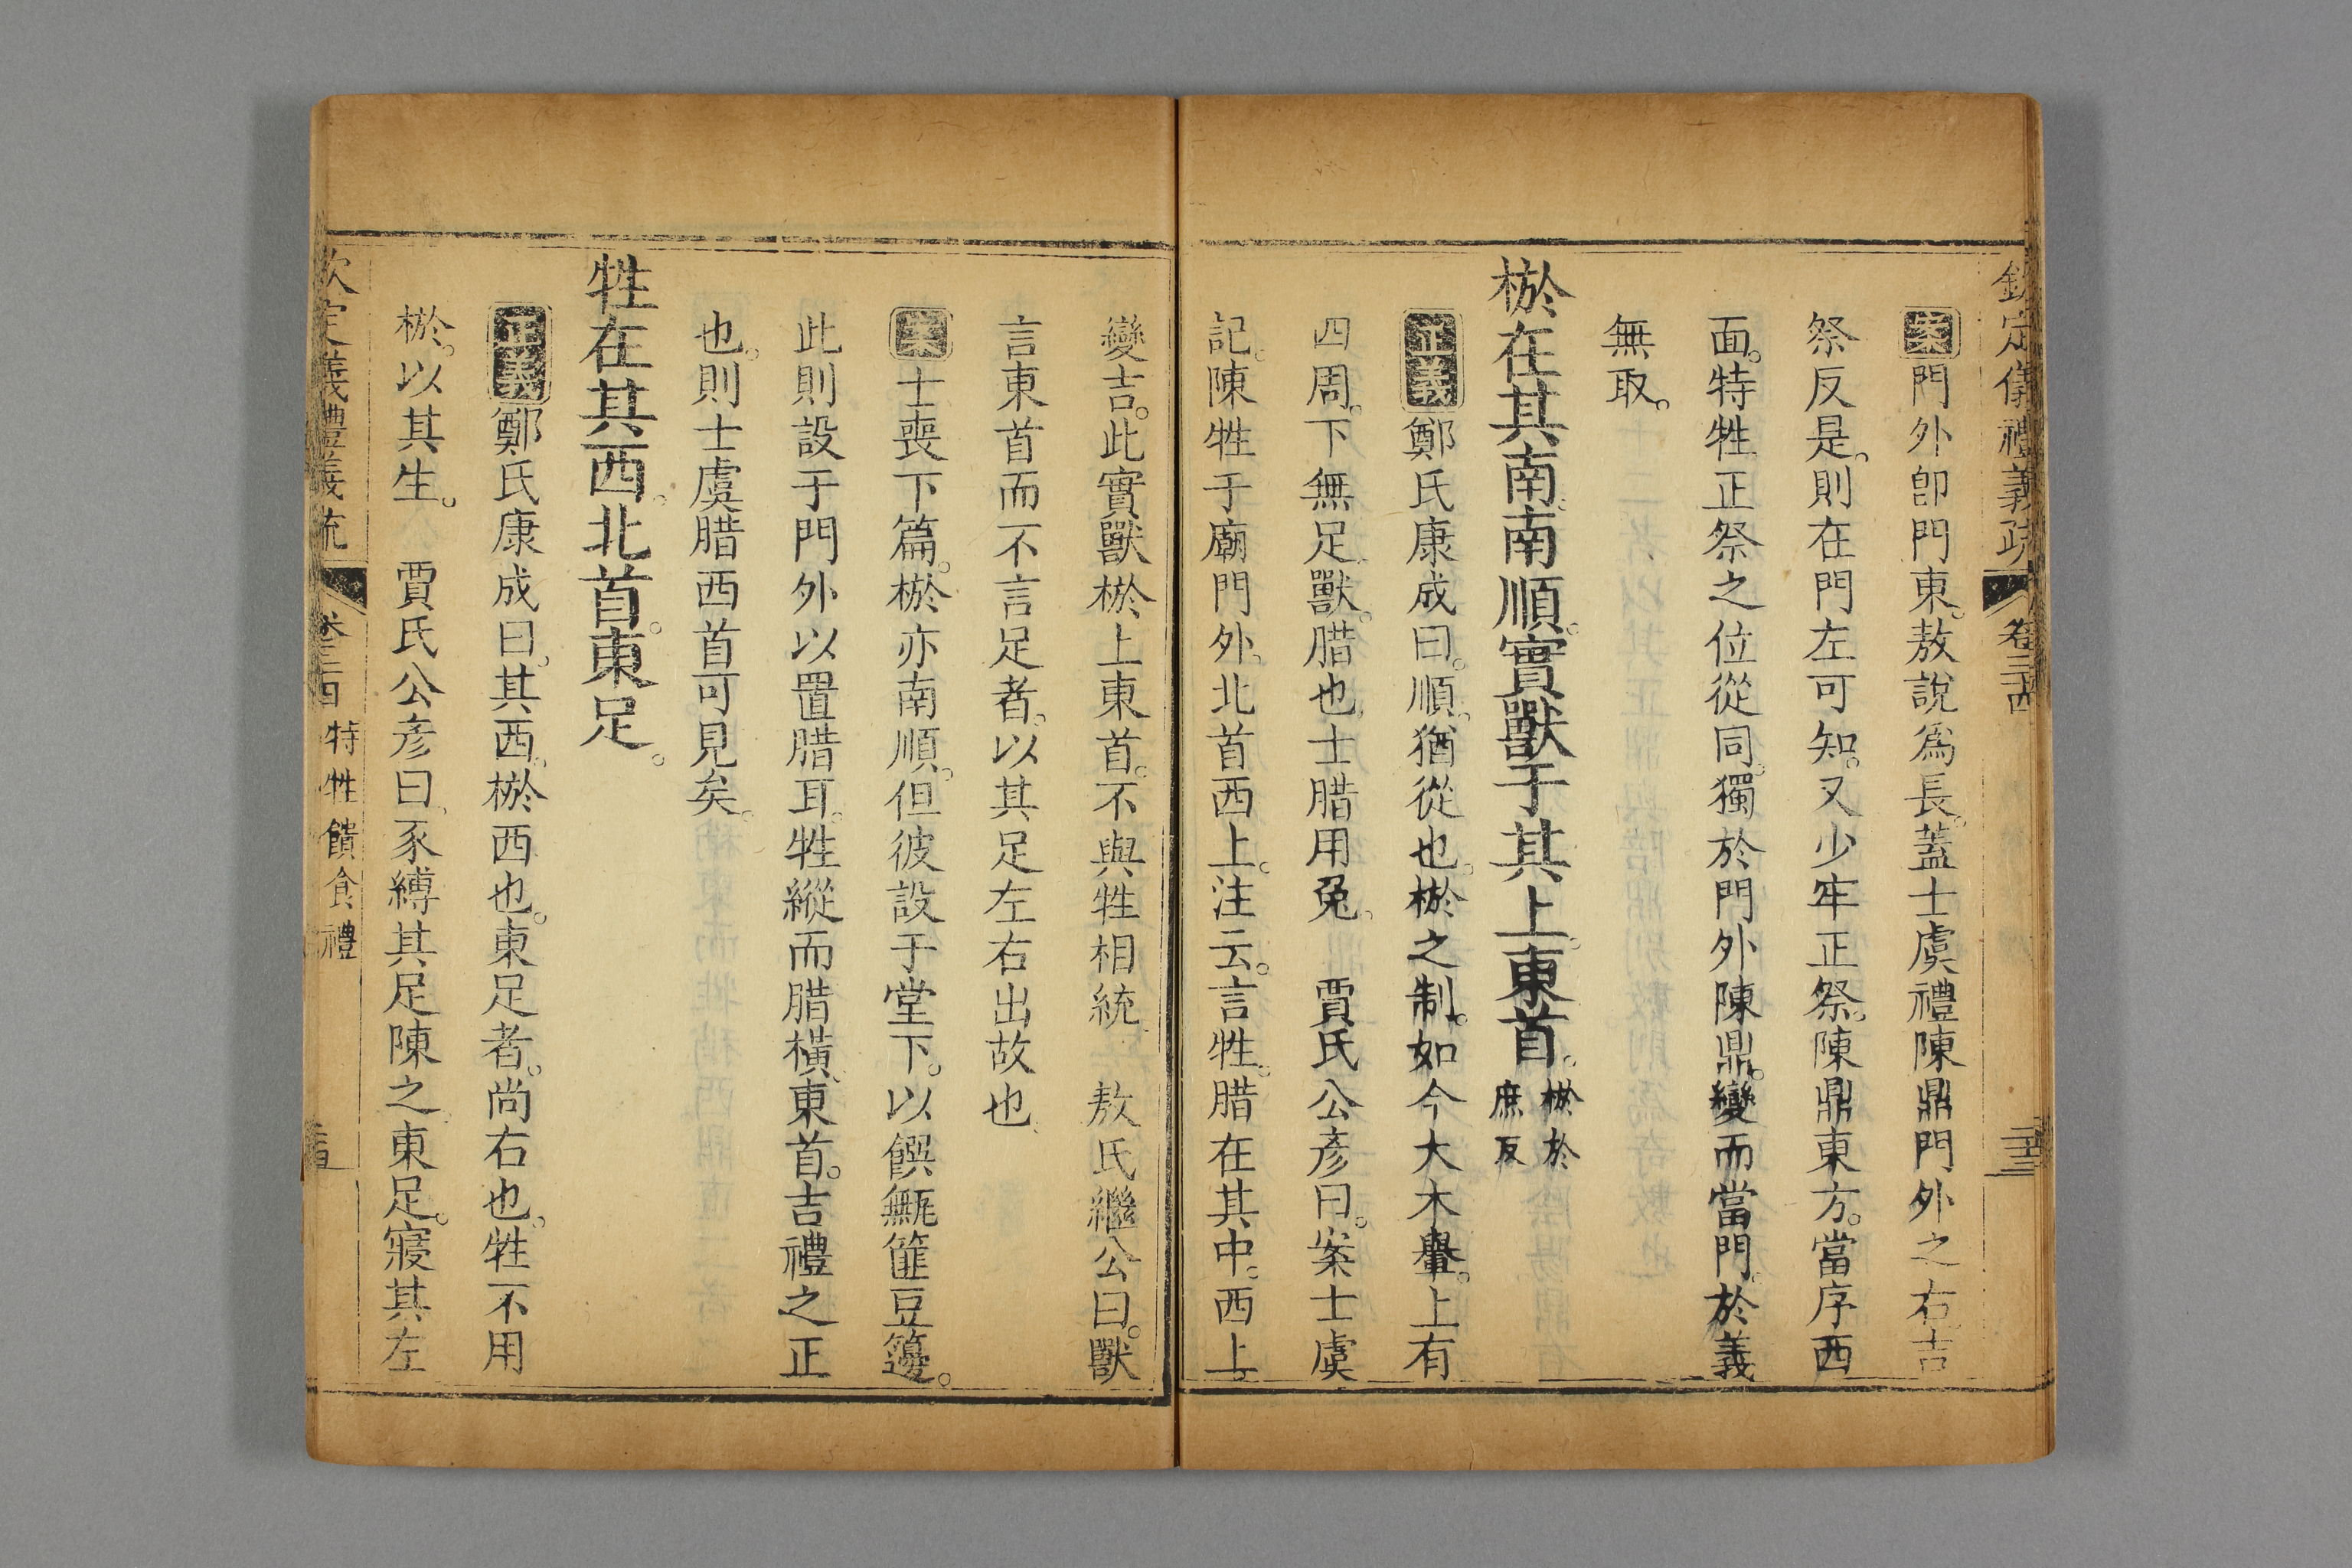 欽定儀禮義疏 卷三十四
案門外卽門東。敖說爲長。蓋士虞禮陳鼎門外之右。吉
祭反是。則在門左可知。又少牢正祭。陳鼎東方。當序西
面。特牲正祭之位從同。獨於門外陳鼎。變而當門。於義
無取。
棜在其南。南順。實獸于其上。東首。棜於庶反
正義鄭氏康成曰。順。猶從也。棜之制。如今大木轝。上有
四周。下無足。獸。腊也。士腊用兔。 賈氏公彥曰。案士虞
記。陳牲于廟門外。北首西上。注云。言牲。腊在其中。西上
變吉。此實獸棜上東首。不與牲相統。 敖氏繼公曰。獸
言東首而不言足者。以其足左右出故也。
案士喪下篇。棜亦南順。但彼設于堂下。以饌甒篚豆籩。
此則設于門外以置腊耳。牲縱而腊橫。東首。吉禮之正
也。則士虞腊西首可見矣。
牲在其西。北首。東足。
正義鄭氏康成曰。其西。棜西也。東足者。尚右也。牲不用
棜。以其生。 賈氏公彥曰。豕縛其足陳之東足。寢其左
欽定儀禮義疏 卷三十四 特牲饋食禮